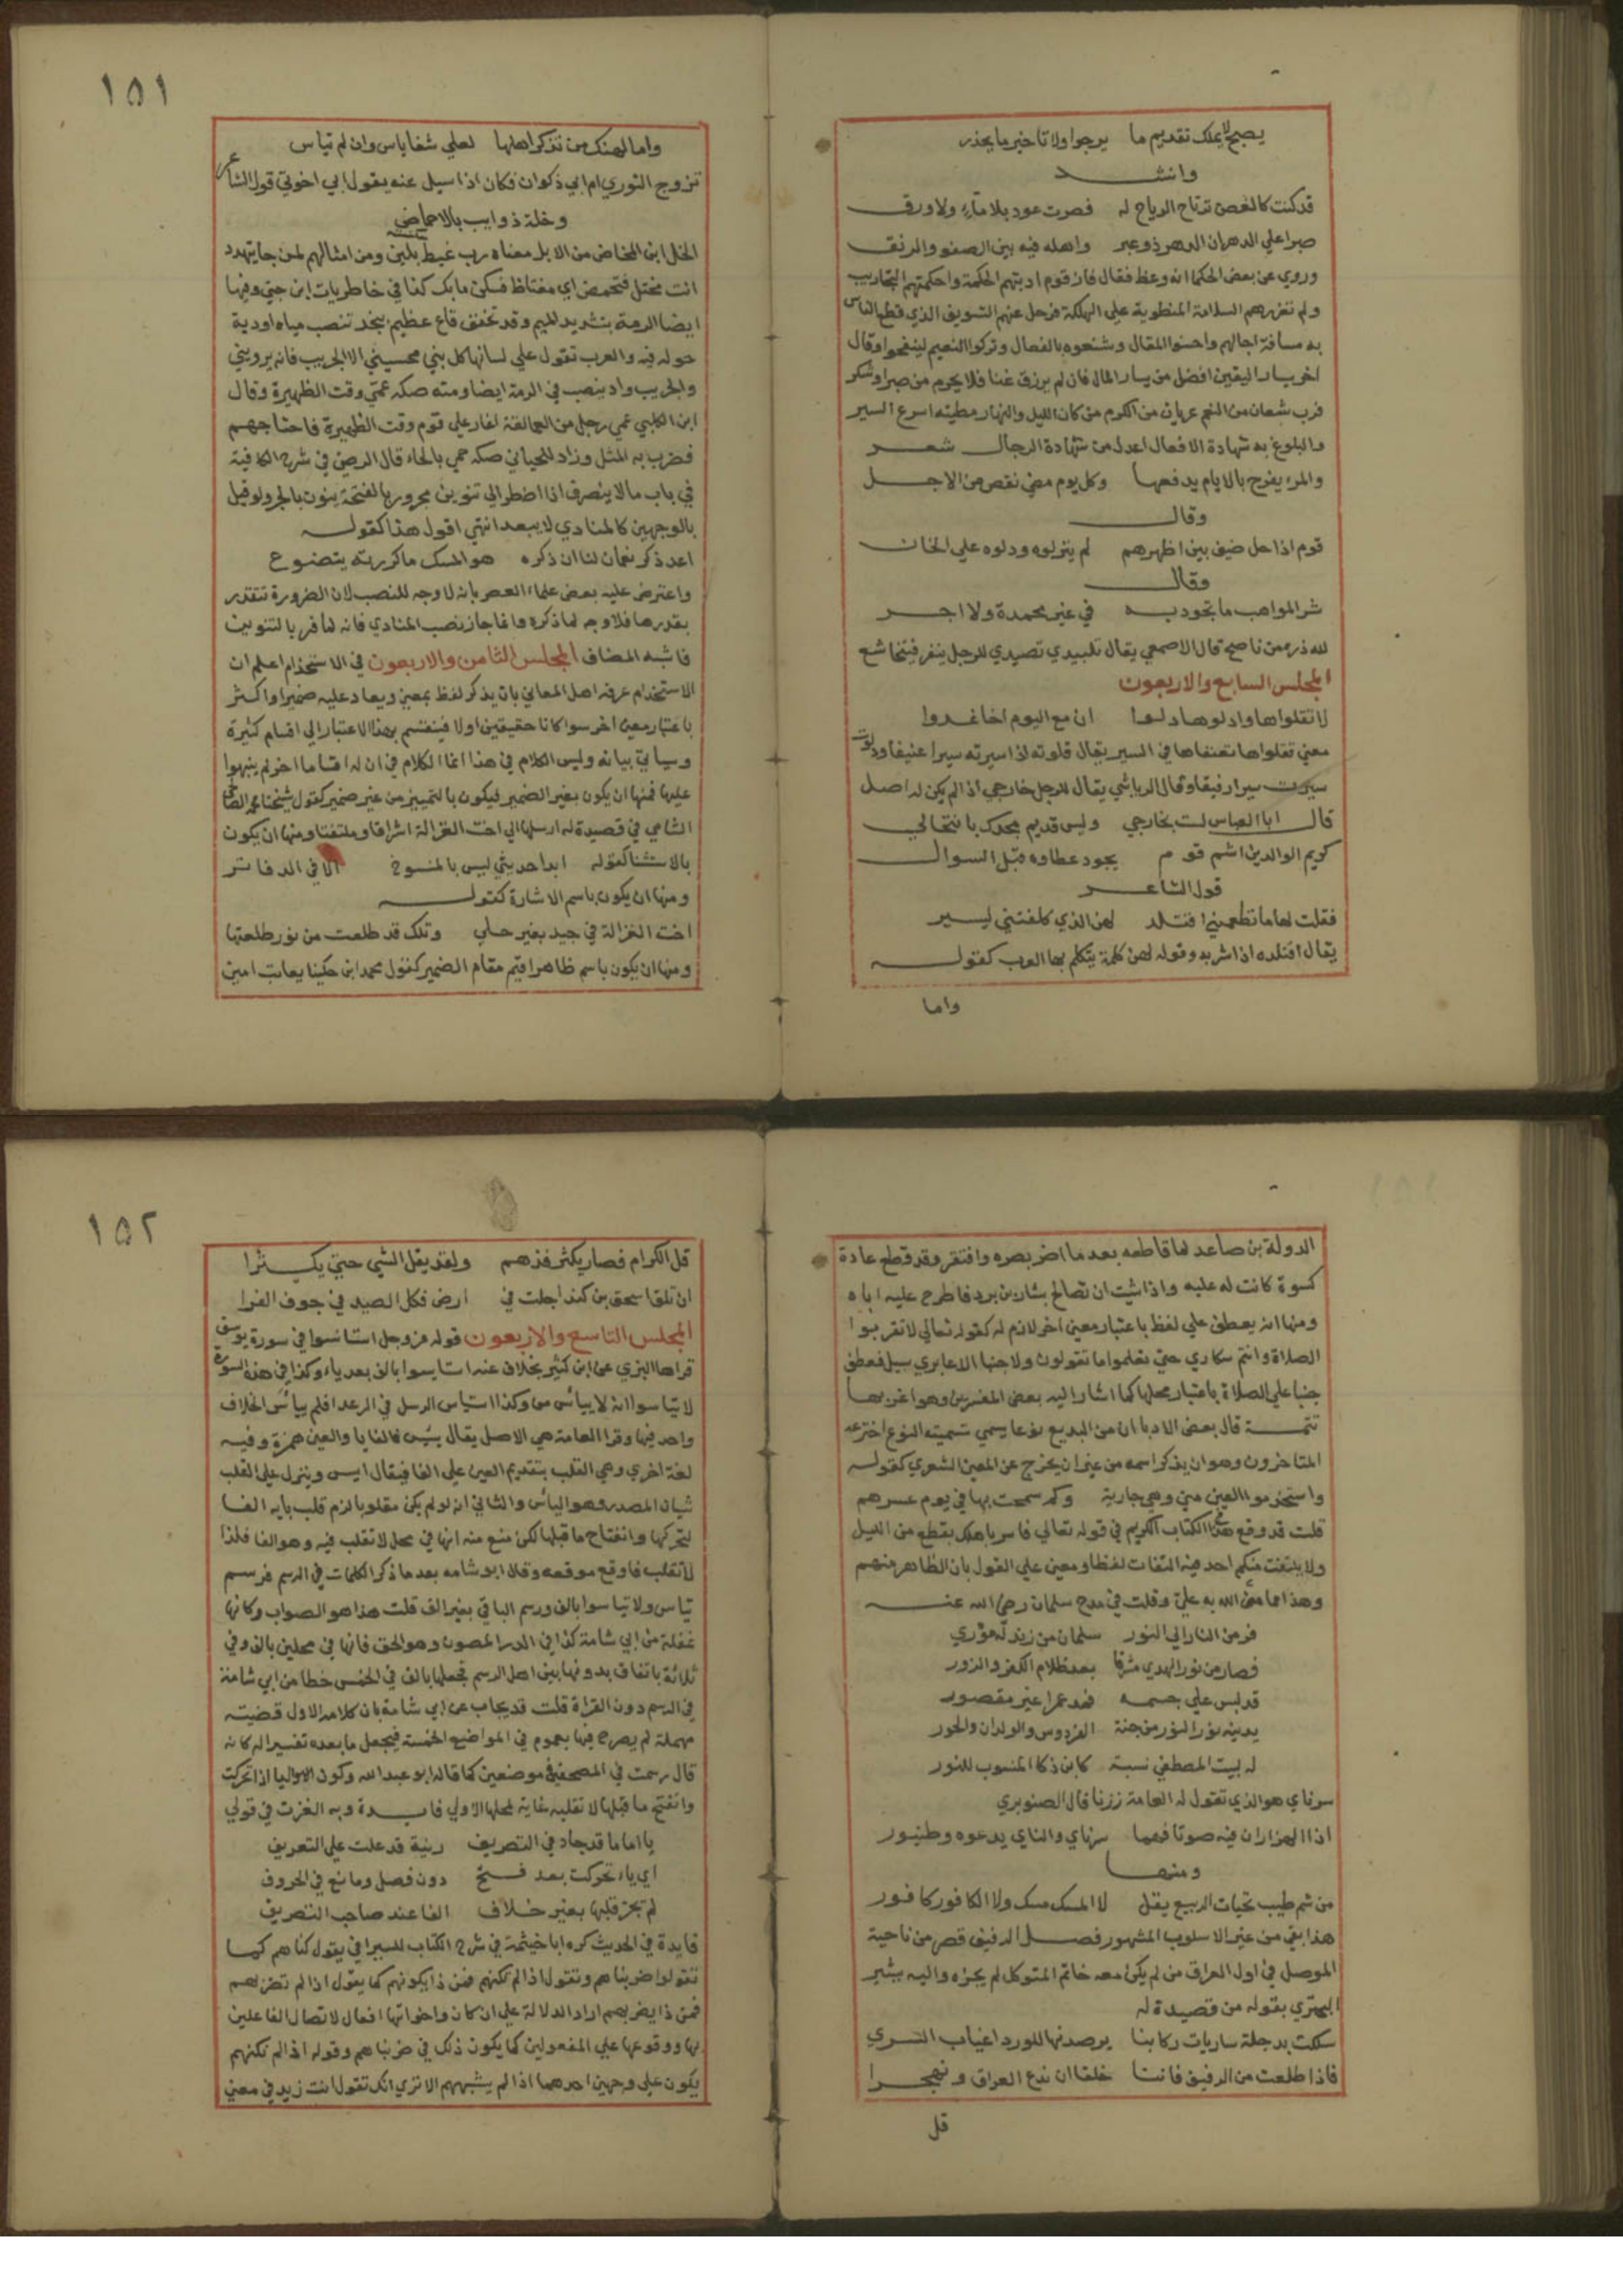 يصبح لا يملك تقديم ما يرجوا ولا تاخير ما يحذر
وانشد
قد كنت كالغصن ترتاح الرياح له فصرت عود بلا ماء ولا ورق
صبرا علي الدهر ان الدهر ذو عبر واهله فيه بين الصفو والرنق
وروي عن بعض الحكما انه وعظ فقال فان قوم ادبتهم الحكمة واحكمتهم التجاريب
ولم تغررهم السلامة المنطوية علي الهلكة فرحل عنهم التسويف الذي قطع الناس
به مسافة اجالهم واحسنوا المقال وشفعوه بالفعال وتركوا النعيم لينعموا وقال
اخر يسار اليقين افضل من يسار المال فان لم يرزق غنا فلا يحرم من صبرا وشكر
فرب شبعان من النعم عريان من الكرم من كان الليل والنهار مطيته اسرع السير
والبلوغ به شهادة الافعال اعدل من شهادة الرجال شعر
والمرء يفرح بالايام يدفعها وكل يوم مضي نقص من الاجل
وقال
قوم اذا حل ضيف بين اظهرهم لم ينزلوه ودلوه علي الخان
وقال
شر المواهب ما تجود به في غير محمدة ولا اجر
لله در من ناصح قال الاصمعي يقال تلبيدي تصيدي للرجل ينفر فيتخاشع
المجلس السابع والاربعون
لا تقلواها وادلوها دلوا ان مع اليوم اخا غدوا
معني تقلواها تعنفاها في السير يقال قلوته اذا سيرته سيرا عنيفا ودلوت
سيرت سيرا رفيقا وقال الرياشي يقال للرجل خارجي اذا لم يكن له اصل
قال ابا العباس لست بخارجي وليس قديم مجدك بانتحالي
كريم الوالدين اشم قوم يجود عطاوه قبل السوال
قول الشاعر
فقلت لها ما تطعميني افتلد لهن الذي كلفتني ليسير
يقال افتلده اذا شربه وقوله لهن كلمة يتكلم بها العرب كقوله
واما
١٥١
واما لهنك من تذكر اهلها لعلي شفا ياس وان لم تياس
تزوج الثوري ام ابي ذكوان فكان اذا سيل عنه يقول ابي اخوتي قول الشاعر
وخلة ذوايب بالاحماض
الخل ابن المخاض من الابل معناه رب غيط بلين ومن امثالهم لمن جا يتهدد
انت مختل فتحمض اي مغتاظ فسكن ما بك كذا في خاطريات ابن جني وفيها
ايضا الرمة بتشديد الميم وقد تخفف قاع عظيم بنجد تنصب مياه اودية
حوله فيه والعرب تقول علي لسانها كل بني محسيني الا الجريب فانه يرويني
والجريب واد ينصب في الرمة ايضا ومنه صكه عمي وقت الظهيرة وقال
ابن الكلبي عمي رجل من العمالقة اغار علي قوم وقت الظهيرة فاحتاجهم
فضرب به المثل وزاد اللحياني صكه حمي بالحاء قال الرضي في شرح الكافية
في باب ما لا ينصرف اذا اضطر الي تنوين مجرور بالفتحة ينون بالجر ولو قيل
بالوجهين كالمنادي لا يبعد انتهي اقول هذا كقوله
اعد ذكر نعمان لنا ان ذكره هو المسك ما كررته يتضوع
واعترض عليه بعض علماء العصر بانه لا وجه للنصب لان الضرورة تتقدر
بقدرها فلا وجه لما ذكره وانما جاز نصب المنادي فانه لما فر بالتنوين
فاشبه المضاف المجلس الثامن والاربعون في الاستخدام اعلم ان
الاستخدام عرفه اهل المعاني بان يذكر لفظ بمعني ويعاد عليه ضمير او اكثر
باعتبار معني اخر سوا كانا حقيقتين او لا فينقسم بهذا الاعتبار الي اقسام كثيرة
وسياتي بيانه وليس الكلام في هذا انما الكلام في ان له اقساما اخر لم ينبهوا
عليها فمنها ان يكون بغير الضمير فيكون بالتمييز من غير ضمير كقول شيخنا
الشامي في قصيدة له ارسلها الي اخت الغزالة اشراقا وملتفتا ومنها ان يكون
بالاستثنا كقوله ابدا حديثي ليس بالمنسوخ الا في الدفاتر
ومنها ان يكون باسم الاشارة كقوله
اخت الغزالة في جيد بغير حلي وتلك قد طلعت من نور طلعتها
ومنها ان يكون باسم ظاهر اقيم مقام الضمير كقول محمد ابن حكينا يعاتب امين
الدولة بن صاعد لما قاطعه بعد ما اضر بصره وافتقر وقد قطع عادة
كسوة كانت له عليه واذا شيت ان تصالح بشار بن برد فاطرح عليه اباه
ومنها انه يعطف علي لفظ باعتبار معني اخر لازم له كقوله تعالي لا تقربوا
الصلاة وانتم سكاري حتي تعلموا ما تقولون ولا جنبا الا عابري سبيل فعطف
جنبا علي الصلاة باعتبار محلها كما اشار اليه بعض المفسرين وهو اغربها
تتمة قال بعض الادبا ان من البديع نوعا يسمي تسمية النوع اخترعه
المتاخرون وهو ان يذكر اسمه من غير ان يخرج عن المعني الشعري كقوله
واستخدموا العين مني وهي جارية وكم سمحت بها في يوم عسرهم
قلت قد وقع هذا في الكتاب الكريم في قوله تعالي فاسر باهلك بقطع من الليل
ولا يلتفت منكم احد فيه التفات لفظا ومعني علي القول بان الظاهر منهم
وهذا مما من الله به علي وقلت في مدح سلمان رضي الله عنه
فر من النار الي النور سلمان من زند له وري
فصار من نور الهدي مشرقا بعد ظلام الكفر والزور
قد لبس علي جسمه فعد عمرا غير مقصور
يدينه نور النور من جنة الفردوس والولدان والحور
له لبيت المصطفي نسبة كابن ذكا المنسوب للنور
سرناي هو الذي تقول له العامة زرنا قال الصنوبري
اذا الهزاران فيه صوتا فهما سرناي والناي يدعوه وطنبور
ومنها
من شم طيب تحيات الربيع يقل لا المسك مسك ولا الكافور كافور
هذا بقي من غير الاسلوب المشهور فصل الدفيق قصر من ناحية
الموصل في اول العراق من لم يكن معه خاتم المتوكل لم يجزه واليه يشير
البحتري بقوله من قصيدة له
سلكت بدجلة ساريات ركابنا يرصدنها للورد اغباب السري
فاذا طلعت من الرفيف فاننا خلقا ان ندع العراق ونهجرا
قل
١٥٢
قل الكرام فصار يكثر فذهم ولقد يقل الشي حتي يكثرا
ان تلق اسحق بن كنداجلت في ارض فكل الصيد في جوف الفرا
المجلس التاسع والاربعون قوله عز وجل استاسوا في سورة يوسف
قراها البزي عن ابن كثير بخلاف عنه استايسوا بالف بعد ياء وكذا في هذه السورة
لا تياسوا انه لا ييأس من وكذا استياس الرسل في الرعد افلم ييأس الخلاف
واحد فيها وقرا العامة هي الاصل يقال يئس فالفا يا والعين همزة وفيه
لغة اخري وهي القلب بتقديم العين علي الفا فيقال ايس وينزل علي القلب
شيان المصدر وهو الياس والثاني انه لو لم يكن مقلوبا لزم قلب يايه الفا
لتحركها وانفتاح ما قبلها لكن منع منه انها في محل لا تقلب فيه وهو الفا فلذا
لا تقلب فاوقع موقعه وقال ابو شامه بعد ما ذكر الكلمات في الرسم فرسم
تياس ولا تياسوا بالف ورسم الباقي بغير الف قلت هذا هو الصواب وكانها
غفلة من ابي شامة كذا في الدر المصون وهو الحق فانها في محلين بالف وفي
ثلاثة باتفاق بدونها بين اهل الرسم فجعلها بالف في الخمس خطا من ابي شامة
في الرسم دون القراة قلت قد يجاب عن ابي شامة بان كلامه الاول قضيته
مهملة لم يصرح فيها بعموم في المواضع الخمسة فيجعل ما بعده تفسيرا له كانه
قال رسمت في المصحف في موضعين كما قاله ابو عبد الله وكون الواو اليا اذا تحركت
وانفتح ما قبلها لا تقلب غاية لمحلها الاولي فايدة وبه الغزت في قولي
يا اماما قد جاد في التصريف رنية قد علت علي التعريف
اي ياء تحركت بعد فتح دون فصل ومانع في الحروف
لم تجز قلبها بغير خلاف الفا عند صاحب التصريف
فايدة في الحديث كره ابا خيثمة في شرح الكتاب للسيرافي يقول كناهم كما
تقول ضربناهم وتقول اذا لم نكنهم فمن ذا يكونهم كما يقول اذا لم تضربهم
فمن ذا يضربهم اراد الدلالة علي ان كان واخواتها افعال لاتصال الفاعلين
بها ووقوعها علي المفعولين كما يكون ذلك في ضربناهم وقوله اذا لم نكنهم
يكون علي وجهين احدهما اذا لم يشبههم الا تري انك تقول انت زيد في معني